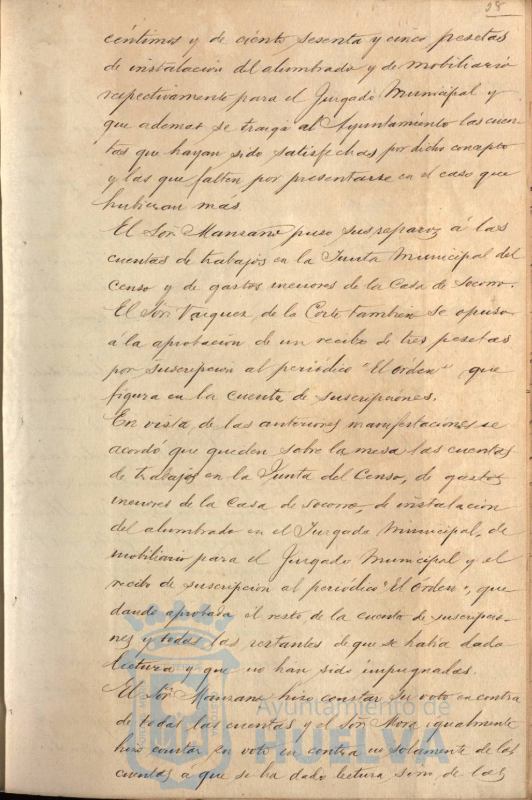 28
céntimos y de ciento sesenta y cinco pesetas
de instalación del alumbrado y de mobiliario
respectivamente para el Jurgado Municipal y
que ademas se traiga al Ayuntamiento las cuen
tas que hayan sido satisfechas por dicho concepto
y las que falten por presentarse en el caso que
hubieran mas.
El Sor. Manzano puso sus reparos á las
cuentas de trabajos en la Junta Municipal del
Censo y de gastos menores de la Casa de Socorro.
El Sor. Vazquez de la Corte tambien se opuso
á la aprobacion de un recibo de tres pesetas
por suscripcion al periódico "El Orden" que
figura en la cuenta de suscripciones.
En vista de las anteriores manifestaciones se
acordó que queden sobre la mesa las cuentas
de trabajos en la Junta del Censo, de gastos
menores de la Casa de Socorro, de instalacion
del alumbrado en el Jurgado Municipal, de
mobiliario para el Jurgado Municipal y el
recibo de suscripcion al periódico "El Orden", que
dando aprobada el resto de la cuenta de suscripcio-
nes y todas las restantes de que se habia dado
lectura y que no han sido impugnadas.
El Sor. Manzano hizo constar su voto en contra
de todas las cuentas y el Sor. Mora igualmente
hizo constar su voto en contra no solamente de las
cuentas á que se ha dado lectura sino de las
Ayuntamiento de
HUELVA